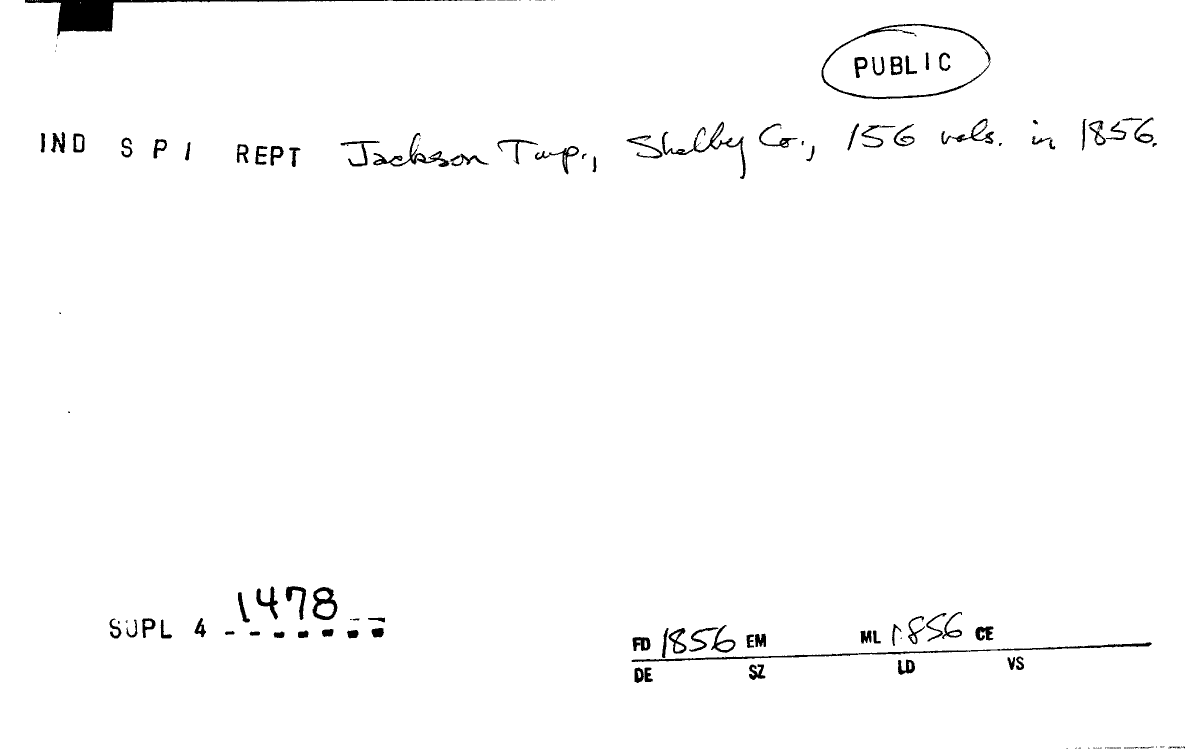 PUBLIC
IND S P I REPT Jackson Twp., Shelby Co., 156 vols. in 1856.
1478
SUPL 4 - - - - - - -
FD 1856 EM ML 1856 CE
DE SZ LD VS